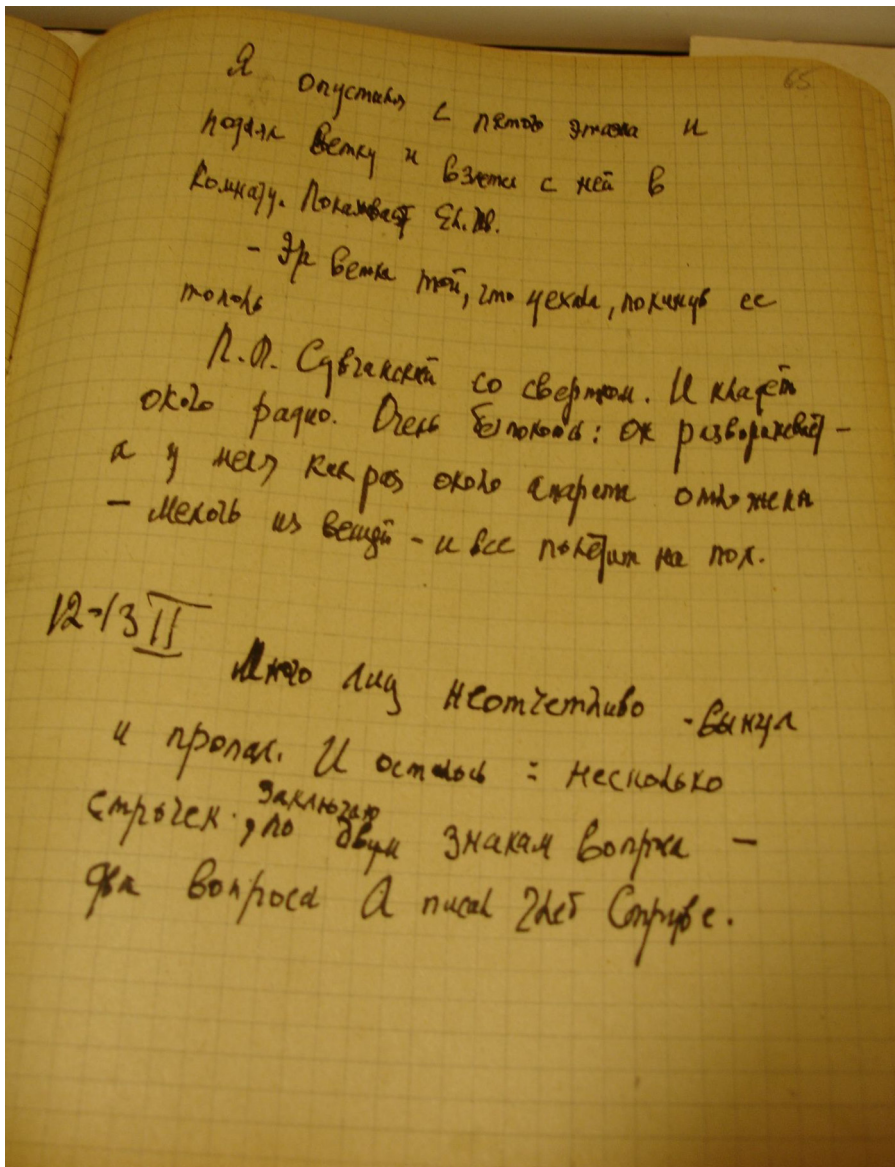 65
Я опустился с пятого этажа и
поднял ветку и взлетел с ней в
комнату. Показывает
— Эта ветка той, что уехала, покинув ее
тополь
П.П. Сувчинский со свертком. И кладет
около радио. Очень беспокоюсь: он разворачивает —
а у меня как раз около аппарата отложена
— мелочь из вещей — и все полетит на пол.
12-13 II
Много лиц неотчетливо - вынул
и пропал. И осталось : несколько
строчек. заключаю
, по двум знакам вопроса —
два вопроса А писал Глеб Струве.